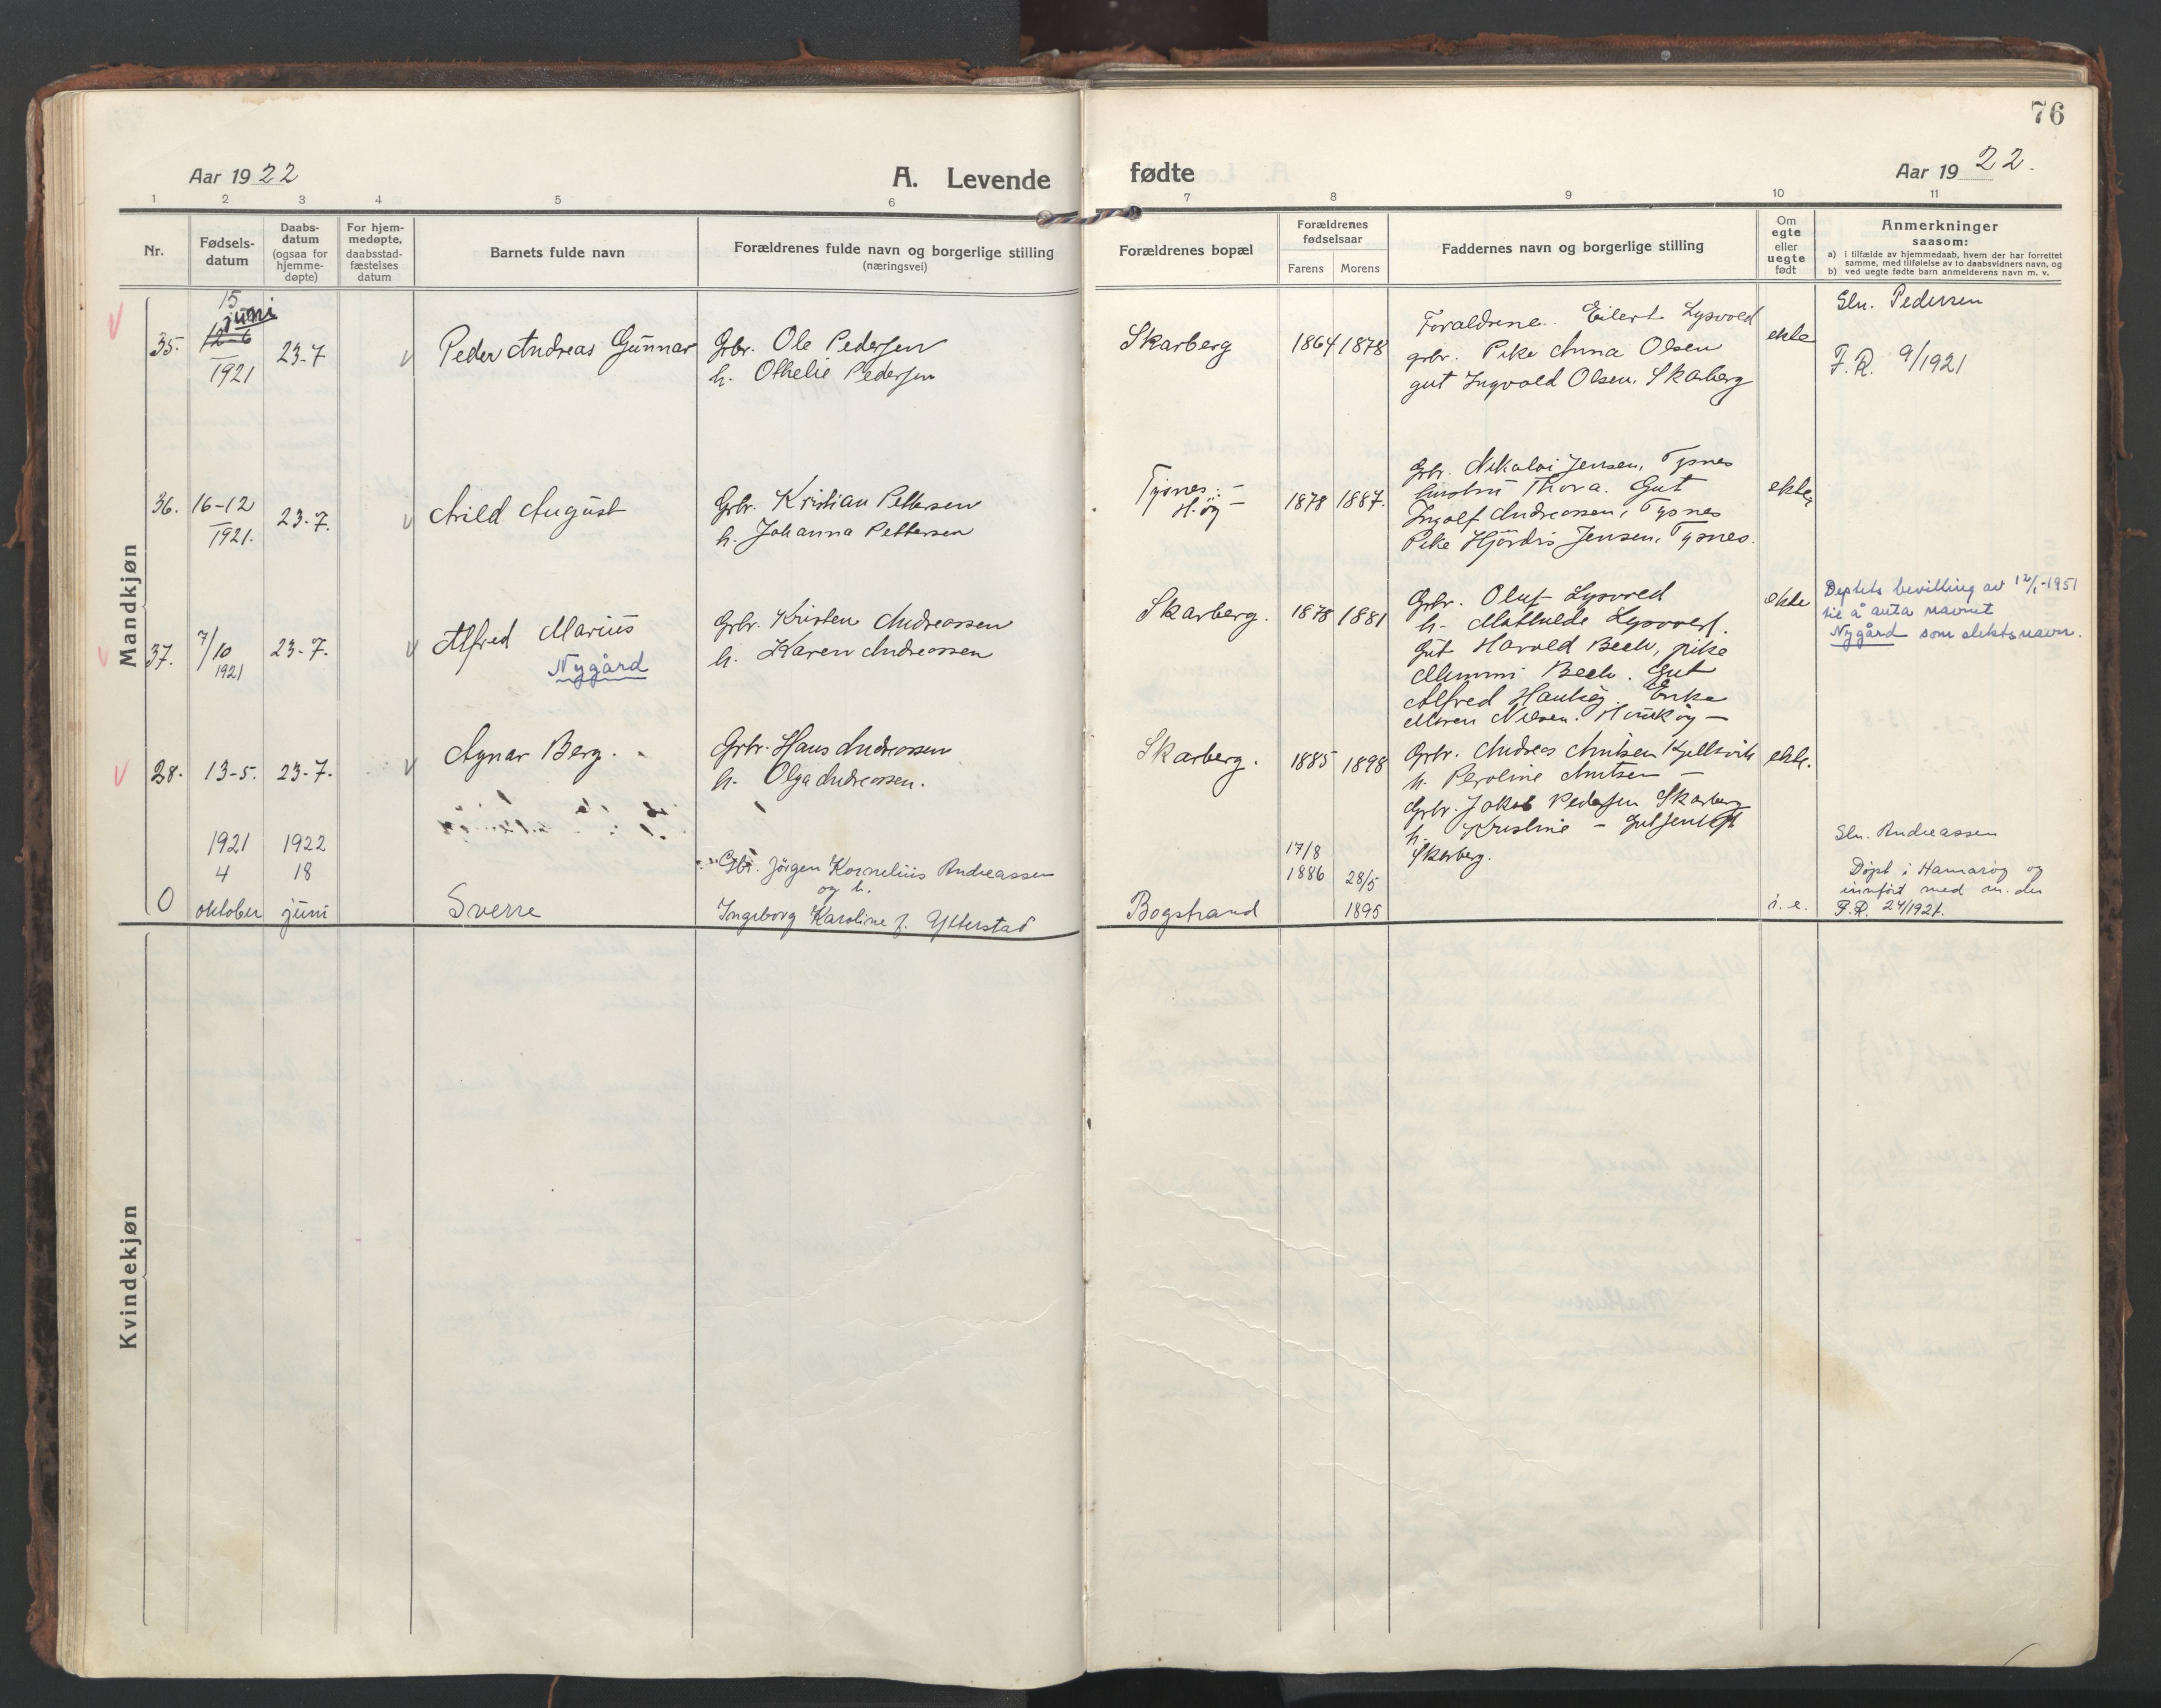 76
Aar 1922
A. Levende
fødte
Aar 1922.
1 2 3 4 5 6 7 8 9 10 11
Nr.
Fødsels-
datum
Daabs-
datum
(ogsaa for
hjemme-
døpte)
For hjem-
medøpte,
daabsstad-
fæstelses
datum
Barnets fulde navn
Forældrenes fulde navn og borgerlige stilling
(næringsvei)
Forældrenes bopæl
Forældrenes
fødselsaar
Farens Morens
Faddernes navn og borgerlige stilling
Om
egte
eller
uegte
født
Anmerkninger
saasom:
a) i tilfælde av hjemmedaab, hvem der har forrettet
samme, med tilføielse av to daabsvidners navn, og
b) ved uegte fødte barn anmelderens navn m. v.
Mandkjøn
35.
15
juni
12-6
1921
23-7
Peder Andreas Gunnar
Grbr. Ole Pedersen
h. Othelie Pedersen
Skarberg
1864 1878
Forældrene. Eilert Lysvold
grbr. Pike Anna Olsen
gut Ingvald Olsen, Skarberg
ekte
Sln. Pedersen
F.R. 9/1921
36.
16-12
1921.
23-7.
Arild August
Grbr. Kristian Pettersen
h. Johanna Pettersen
Tysnes. -
H.øy -
1878 1887.
Grbr. Nikolai Jensen, Tysnes
hustru Thora. Gut
Ingolf Andreassen, Tysnes
Pike Hjördis Jensen, Tysnes.
ekte
37.
7/10
1921
23-7.
Alfred Marius
Nygård
Grbr. Kristen Andreassen
h. Karen Andreassen
Skarberg.
1878 1881
Grbr. Oluf Lysvold
h. Mathilde Lysvold.
Gut Harald Bech, pike
Mimmi Bech. Gut
Alfred Haukøy. Enke
Maren Nilsen. Haukøy -
ekte
Deptets bevilling av 12/1-1951
til å anta navnet
Nygård som slektsnavn.
38.
13-5.
23-7.
Agnar Berg.
Grbr. Hans Andreassen
h. Olga Andreassen.
Skarberg.
1885 1898
Grbr. Andreas Knutsen Kjellsvik
h. Peroline Knutsen -
Grbr. Jakob Pedersen Skarberg
h. Kristine - Gut
Skarberg.
ekte.
0
1921
4
oktober
1922
18
juni
Sverre
Gbr. Jörgen Kornelius Andreassen
og h.
Ingeborg Karoline f. Ytterstad
Bogstrand
17/8
1886
28/5
1895
i. e.
Sln. Andreassen
Døpt i Hamarøy og
innført med m. der
F.R. 24/1921.
Kvindekjøn